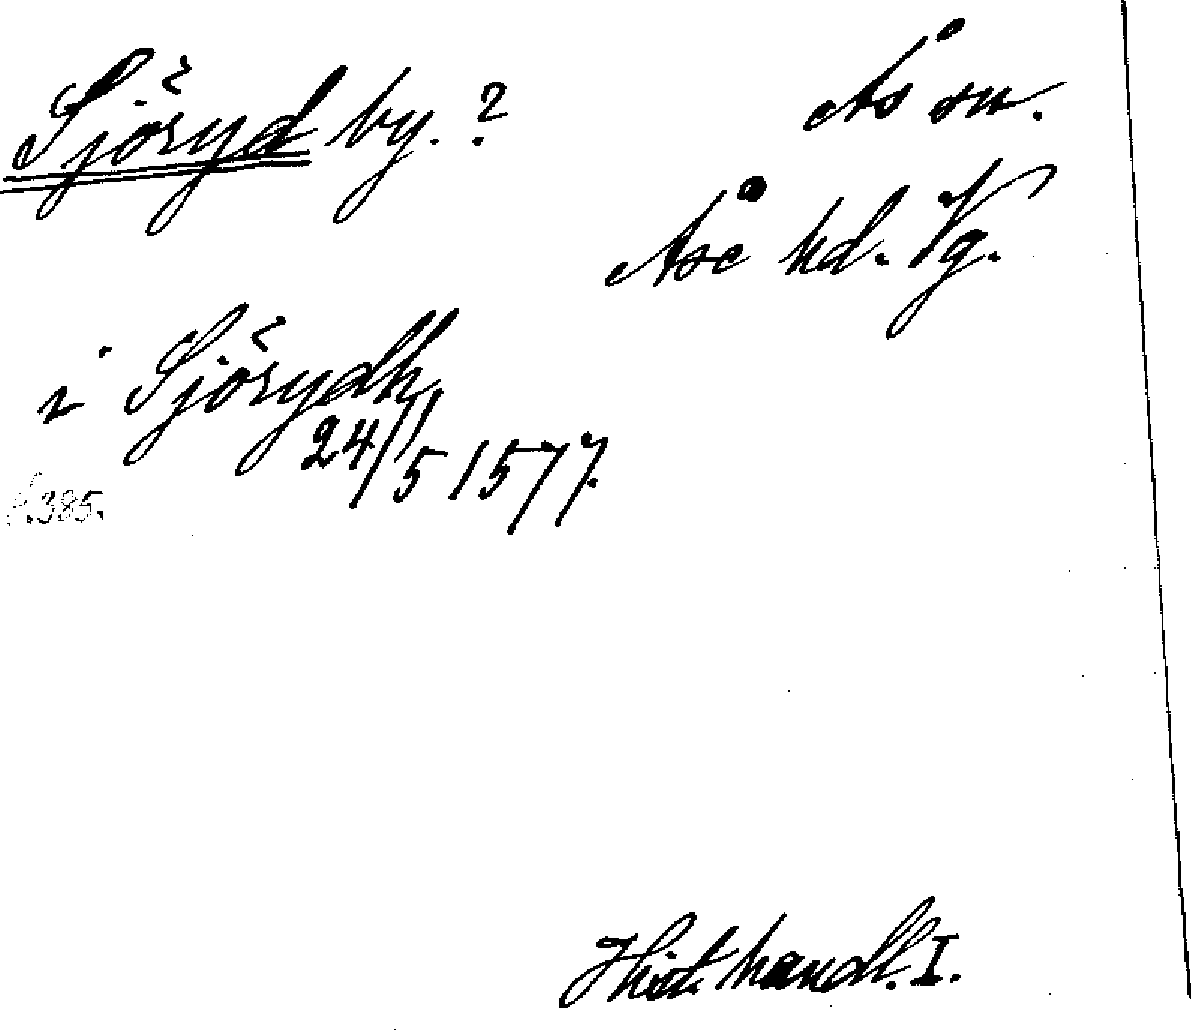 Sjöryd by.?
Ås sn.
Åse hd. Vg.
i Sjörydh
24/5 1577.
s. 385.
Hist. handl. I.